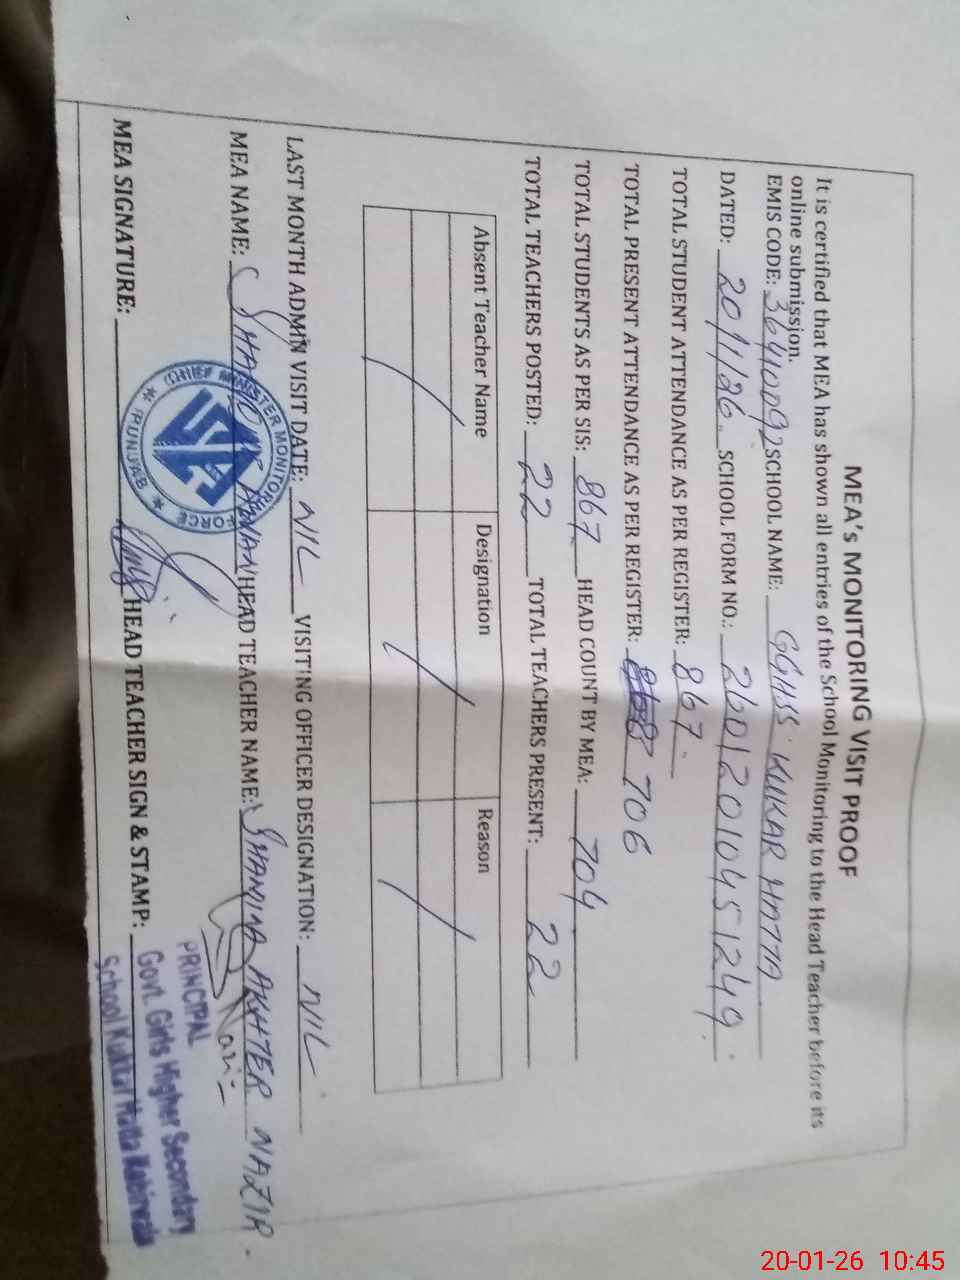 MEA's MONITORING VISIT PROOF
It is certified that MEA has shown all entries of the School Monitoring to the Head Teacher before its
online submission.
EMIS CODE: 36410092 SCHOOL NAME: GGHSS KUKAR HATTA
DATED: 20/1/26. SCHOOL FORM NO.: 26012010451249.
TOTAL STUDENT ATTENDANCE AS PER REGISTER: 867.
TOTAL PRESENT ATTENDANCE AS PER REGISTER: 706
TOTAL STUDENTS AS PER SIS: 867 HEAD COUNT BY MEA: 704
TOTAL TEACHERS POSTED: 22 TOTAL TEACHERS PRESENT: 22
Absent Teacher Name Designation Reason
LAST MONTH ADMIN VISIT DATE: NIL VISITING OFFICER DESIGNATION: NIL
MEA NAME: AWAN HEAD TEACHER NAME: SHAMINA AKHTER NAZIR.
CHIEF MINISTER MONITORING FORCE
PUNJAB
MEA SIGNATURE: HEAD TEACHER SIGN & STAMP:
PRINCIPAL
Govt. Girls Higher Secondary
School Kukkar Hatta Kabirwala
20-01-26 10:45